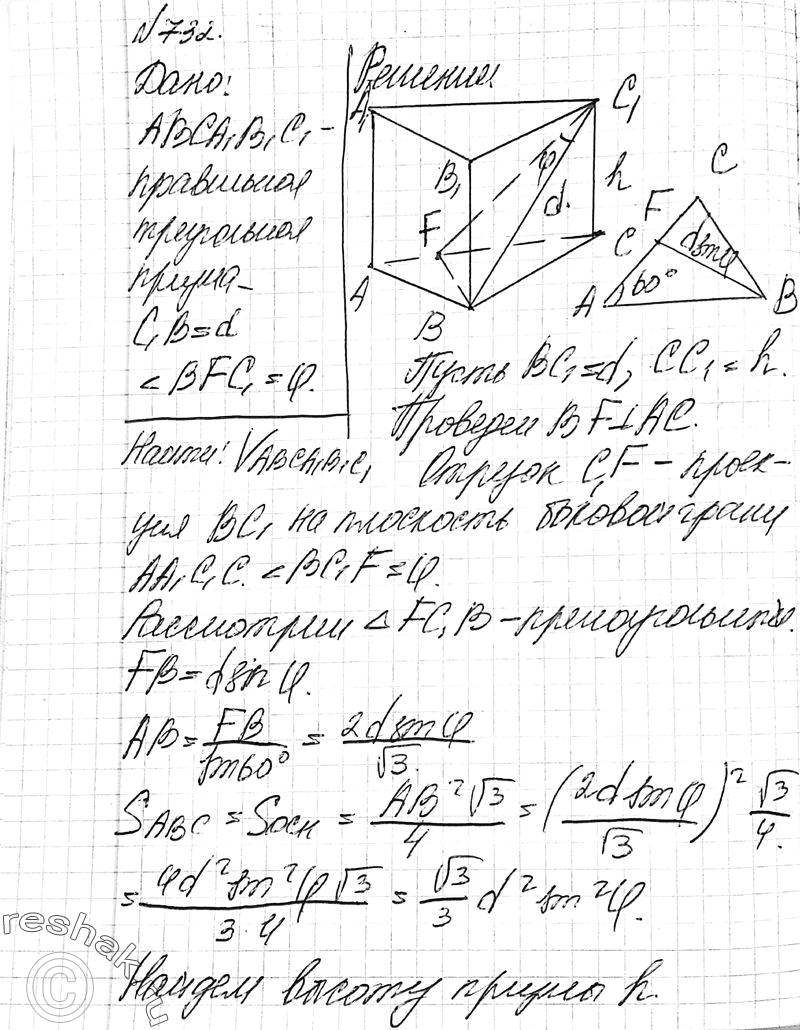 №732.
Дано:
ABCA₁B₁C₁ –
правильная
треугольная
призма
C₁B = d
∠BFC₁ = φ.
Найти: V ABCA₁B₁C₁
Решение
A₁ C₁
B₁ φ h
F d.
C
A
B
C
F
d sin φ
A 60° B
Пусть BC₁ = d, CC₁ = h.
Проведем BF ⊥ AC.
Отрезок C₁F – проек-
ция BC₁ на плоскость боковой грани
AA₁C₁C. ∠BC₁F = φ.
Рассмотрим △FC₁B – прямоугольный.
FB = d sin φ.
AB = FB / sin 60° = 2d sin φ / √3
S ABC = S осн = AB²√3 / 4 = (2d sin φ / √3)² √3 / 4.
= 4d² sin² φ √3 / 3·4 = √3 / 3 d² sin² φ.
Найдем высоту призмы h.
reshak.ru
©